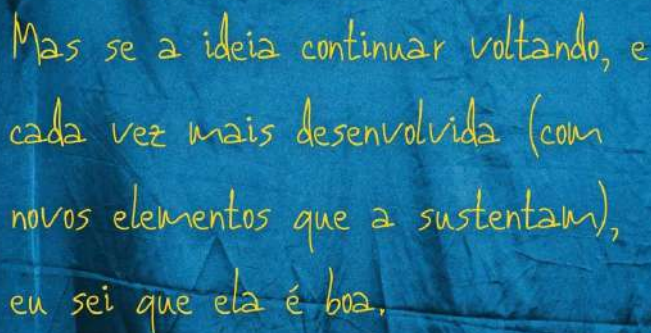 Mas se a ideia continuar voltando, e
cada vez mais desenvolvida (com
novos elementos que a sustentam),
eu sei que ela é boa.